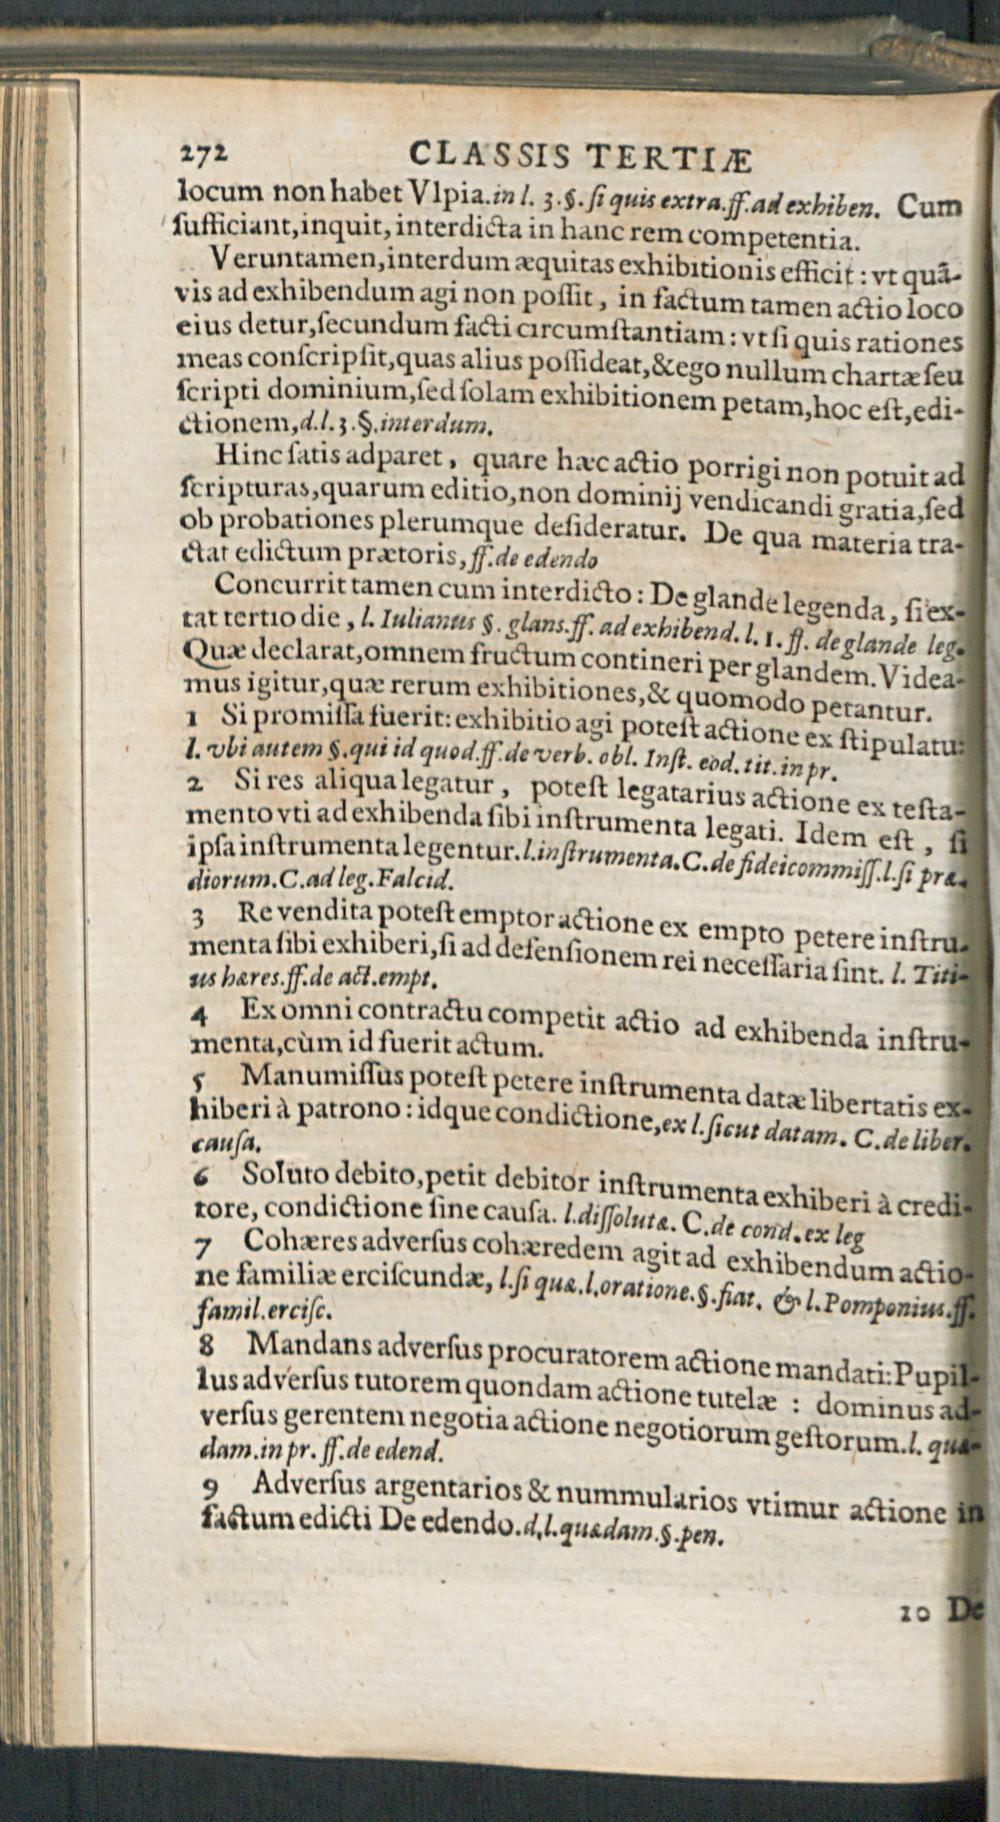 272 CLASSIS TERTIÆ
locum non habet Vlpia. in l. 3. §. ſi quis extra. ff. ad exhiben. Cum
ſufficiant, inquit, interdicta in hanc rem competentia.
Veruntamen, interdum æquitas exhibitionis efficit : vt quã-
vis ad exhibendum agi non poſſit, in factum tamen actio loco
eius detur, ſecundum facti circumſtantiam : vt ſi quis rationes
meas conſcripſit, quas alius poſſideat, & ego nullum chartæ ſeu
ſcripti dominium, ſed ſolam exhibitionem petam, hoc eſt, edi-
ctionem, d. l. 3. §. interdum.
Hinc ſatis adparet, quare hæc actio porrigi non potuit ad
ſcripturas, quarum editio, non dominij vendicandi gratia, ſed
ob probationes plerumque deſideratur. De qua materia tra-
ctat edictum prætoris, ff. de edendo
Concurrit tamen cum interdicto : De glande legenda, ſi ex-
tat tertio die, l. Iulianus §. glans. ff. ad exhibend. l. 1. ff. de glande leg.
Quæ declarat, omnem fructum contineri per glandem. Videa-
mus igitur, quæ rerum exhibitiones, & quomodo petantur.
1 Si promiſſa fuerit: exhibitio agi poteſt actione ex ſtipulatu:
l. vbi autem §. qui id quod. ff. de verb. obl. Inſt. eod. tit. in pr.
2 Si res aliqua legatur, poteſt legatarius actione ex teſta-
mento vti ad exhibenda ſibi inſtrumenta legati. Idem eſt, ſi
ipſa inſtrumenta legentur. l. inſtrumenta. C. de fideicommiſſ. l. ſi præ-
diorum. C. ad leg. Falcid.
3 Re vendita poteſt emptor actione ex empto petere inſtru-
menta ſibi exhiberi, ſi ad defenſionem rei neceſſaria ſint. l. Titi-
us hæres. ff. de act. empt.
4 Ex omni contractu competit actio ad exhibenda inſtru-
menta, cùm id fuerit actum.
5 Manumiſſus poteſt petere inſtrumenta datæ libertatis ex-
hiberi à patrono : idque condictione, ex l. ſicut datam. C. de liber.
cauſa.
6 Soluto debito, petit debitor inſtrumenta exhiberi à credi-
tore, condictione ſine cauſa. l. diſſolutæ. C. de cond. ex leg
7 Cohæres adverſus cohæredem agit ad exhibendum actio-
ne familiæ erciſcundæ, l. ſi quæ. l. oratione. §. fiat. & l. Pomponius. ff.
famil. erciſc.
8 Mandans adverſus procuratorem actione mandati: Pupil-
lus adverſus tutorem quondam actione tutelæ : dominus ad-
verſus gerentem negotia actione negotiorum geſtorum. l. quæ-
dam. in pr. ff. de edend.
9 Adverſus argentarios & nummularios vtimur actione in
factum edicti De edendo. d. l. quædam. §. pen.
10 De